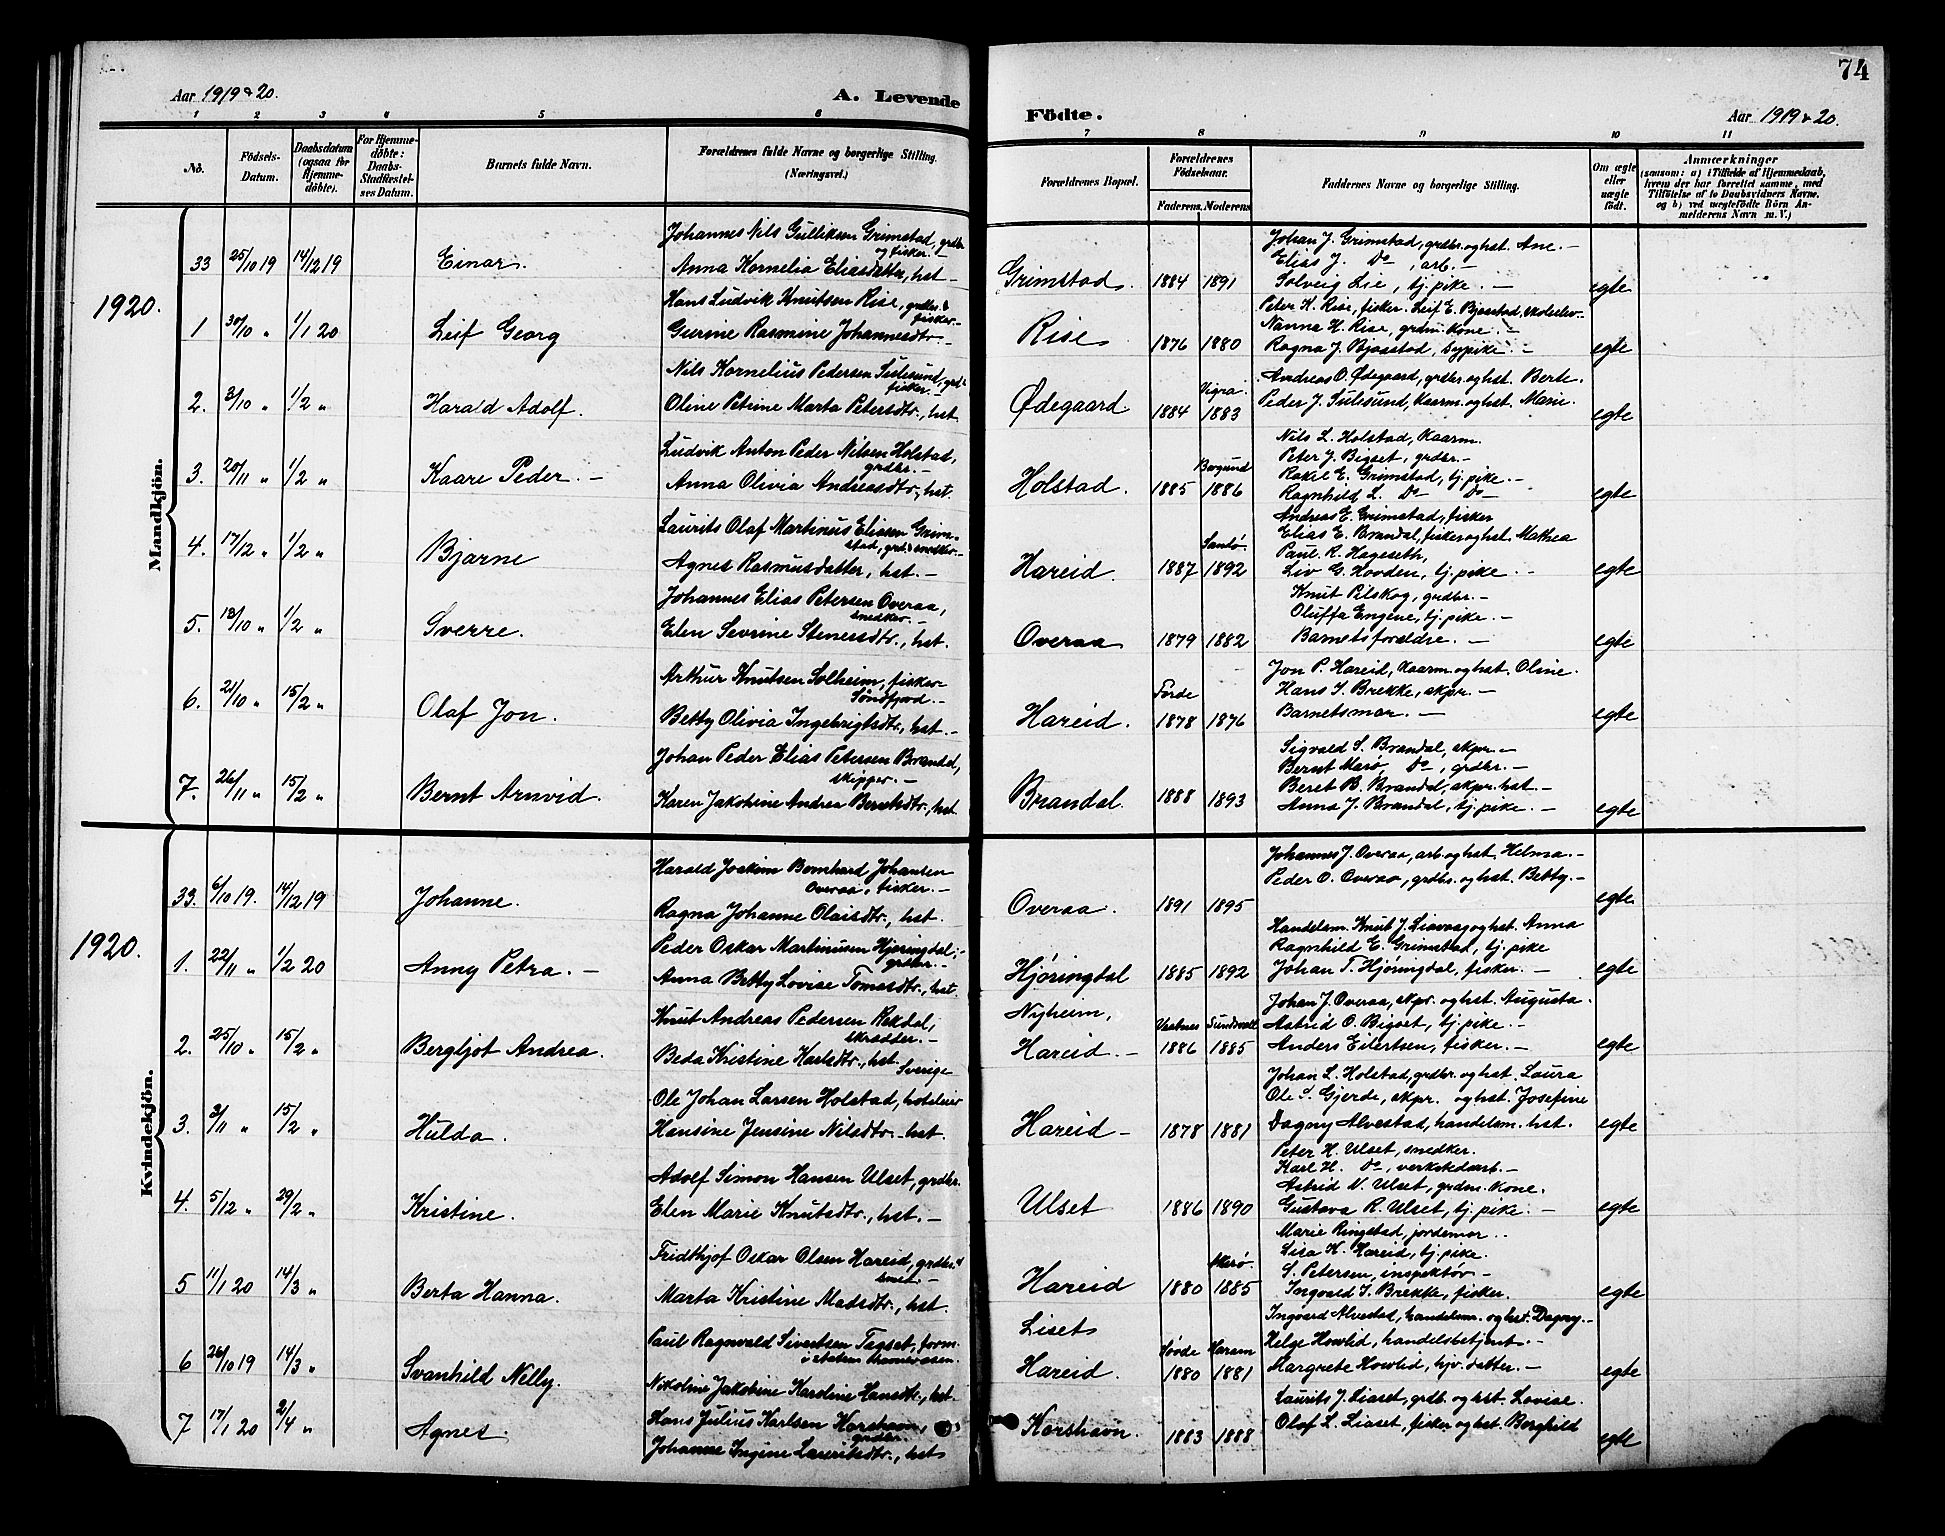 74
Aar 1919 & 20.
A. Levende
Födte.
Aar 1919 & 20.
1 2 3 4 5 6 7 8 9 10 11
No.
Födsels-Datum.
Daabsdatum (ogsaa for Hjemme-döbte).
For Hjemme-döbte: Daabs-Stadfæstelses Datum.
Barnets fulde Navn.
Forældrenes fulde Navne og borgerlige Stilling. (Næringsvei.)
Forældrenes Bopæl.
Forældrenes Födselsaar.
Faderens. Moderens.
Faddernes Navne og borgerlige Stilling.
Om ægte eller uægte födt.
Anmærkninger
(saasom: a) i Tilfælde af Hjemmedaab, hvem der har forrettet samme, med Tilföielse af to Daabsvidners Navne, og b) ved uægtefödte Börn Anmelderens Navn m. V.)
Mandkjön.
33 25/10 19 14/12 19 Einar.
Johannes Nils Gulliksen Grimstad, grdbr. og fisker.-
Anna Kornelia Eliasdatter, hst.-
Grimstad. 1884 1891
Johan J. Grimstad, grdbr. og hst. Ane.-
Elias J. Do, arb.-
Solveig Lie, tj. pike.-
egte
1920.
1 30/10 " 1/1 20 Leif Georg
Hans Ludvik Knutsen Rise, grdbr. & fisker.-
Gurine Rasmine Johannesdtr.-
Rise 1876 1880
Peter K. Rise, fisker. Leif E. Bjåstad,
Nanna H. Rise, grdm. kone.-
Ragna J. Bjåstad, sypike.-
egte
2. 3/10 " 1/2 " Harald Adolf.
Nils Kornelius Pedersen Sulesund, grd. fisker.-
Oline Petrine Marta Petersdtr., hst.
Ødegaard 1884 Vigra. 1883
Andreas O. Ødegaard, grdbr. og hst. Berte.
Peder J. Sulesund, kaarm. og hst. Marie.
egte
3. 20/11 " 1/2 " Kaare Peder.-
Ludvik Anton Peder Nilsen Holstad, grdbr.-
Anna Olivia Andreasdtr., hst.
Holstad. 1885 Borgund 1886
Nils L. Holstad, kaarm.
Peter J. Bigset, grdbr.-
Rakel E. Grimstad, tj. pike.-
Ragnhild L. Do Do-
egte
4. 17/12 " 1/2 " Bjarne
Laurits Olaf Martinus Eliasen Grimstad, grd. & snedker.-
Agnes Rasmusdatter, hst.-
Hareid. 1887 Sandø. 1892
Andreas E. Grimstad, fisker
Elias E. Brandal, fisker og hst. Mathea
Paul R. Hageseth,
Liv G. Hovden, tj. pike.-
egte
5. 13/10 " 1/2 " Sverre.
Johannes Elias Petersen Overaa, snedker.-
Elen Sevrine Stenesdtr., hst.
Overaa 1879 1882
Knut Pilskog, grdbr.-
Oluffa Engene, tj. pike.-
Barnets forældre.-
egte
6. 21/10 " 15/2 " Olaf Jon.
Arthur Knutsen Solheim, fisker Søndfjord.-
Betty Olivia Ingebrigtsdtr., hst.-
Hareid. Førde 1878 1876
Jon P. Hareid, kaarm. og hst. Oline.
Hans S. Brekke, skpr.-
Barnets mor.-
egte
7. 26/11 " 15/2 " Bernt Arnvid.
Johan Peder Elias Petersen Brandal, skipper.-
Karen Jakobine Andrea Berntsdtr., hst
Brandal. 1888 1893
Sigvald S. Brandal, skpr.-
Bernt Marø Do, grdbr.-
Beret B. Brandal, skpr. hst.-
Anna J. Brandal, tj. pike.-
egte
Kvindekjön.
33. 6/10 19. 14/12 19 Johanne.
Harald Joakim Bernhard Johansen Overaa, fisker.-
Ragna Johanne Olaisdtr., hst.
Overaa. 1891 1895
Johannes J. Overaa, arb. og hst. Helma.-
Peder O. Overaa, grdbr. og hst. Betty.-
egte
1920.
1. 22/11 " 1/2 20 Anny Petra.-
Peder Oskar Martinusen Hjøringdal, grdbr.-
Anna Betty Lovise Tomasdtr., hst.
Hjøringdal 1885 1892
Handelsm. Knut J. Liavaag og hst. Anna
Ragnhild E. Grimstad, tj. pike
Johan T. Hjøringdal, fisker.-
egte
2. 25/10 " 15/2 " Bergljot Andrea.
Knut Andreas Pedersen Rekdal, skrædder.-
Beda Kristine Karlsdtr., hst. Sverige
Nyheim, Hareid.- 1886 Sundsvall 1885
Johan J. Overaa, skpr. og hst. Augusta.
Astrid O. Bigset, tj. pike.-
Anders Eilertsen, fisker.-
egte
3. 3/11 " 15/2 " Hulda.
Ole Johan Larsen Holstad, hoteleier
Hansine Jensine Nilsdtr.- hst.
Hareid- 1878 1881
Johan L. Holstad, grdbr. og hst. Laura
Ole S. Gjerde, skpr. og hst. Josefine
Dagny Alvestad, handelsm. hst.
egte
4. 5/12 " 29/2 " Kristine.
Adolf Simon Hansen Ulset, grdbr.
Elen Marie Knutsdtr., hst.-
Ulset 1886 1890
Peter H. Ulset, snedker.
Karl H. Do, verkstedarb.-
Astrid N. Ulset, grdm. kone.
Gustava R. Ulset, tj. pike.-
egte
5 11/1 20 14/3 " Berta Hanna.
Fridthjof Oskar Olsen Hareid, grdbr. & smed.-
Marta Kristine Madsdtr., hst.
Hareid 1880 1885
Marie Ringstad, jordemor..
Lisa K. Hareid, tj. pike.
S. Petersen, inspektør-
Torgvald S. Brekke, fisker.
egte
6 26/10 19 14/3 " Svanhild Nelly.
Paul Ragnvald Sivertsen Tagset, form. i statens havnevæsen.
Nikoline Jakobine Karoline Hansdtr., hst.
Liset Hareid. 1880 Haram 1881
Ingvard Alvestad, handelsm. og hst. Dagny.-
Helge Howlid, handelsbetjent-
Margrete Howlid, hjv. datter.-
egte
7 17/1 20 2/4 " Agnes.
Hans Julius Karlsen Korshavn, grdbr.
Johanne Ingine Lauritsdtr., hst
Korshavn. 1883 1888
Laurits J. Liaset, grdb. og hst. Lovise.
Olaf L. Liaset, fisker og hst. Borghild
egte